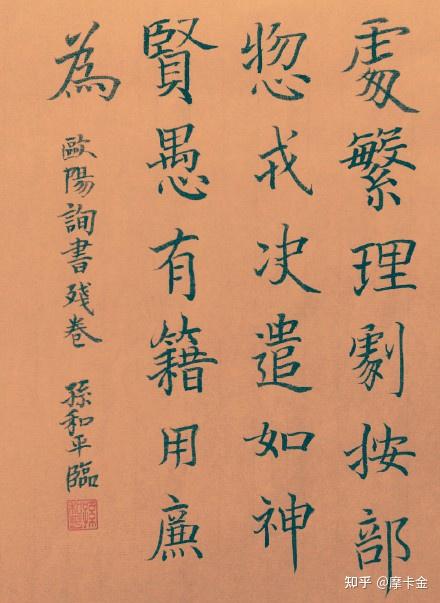 處繁理劇按部
惣戎决遣如神
賢愚有籍用廉
為
歐陽詢書殘卷 孫和平臨
知乎 @摩卡金